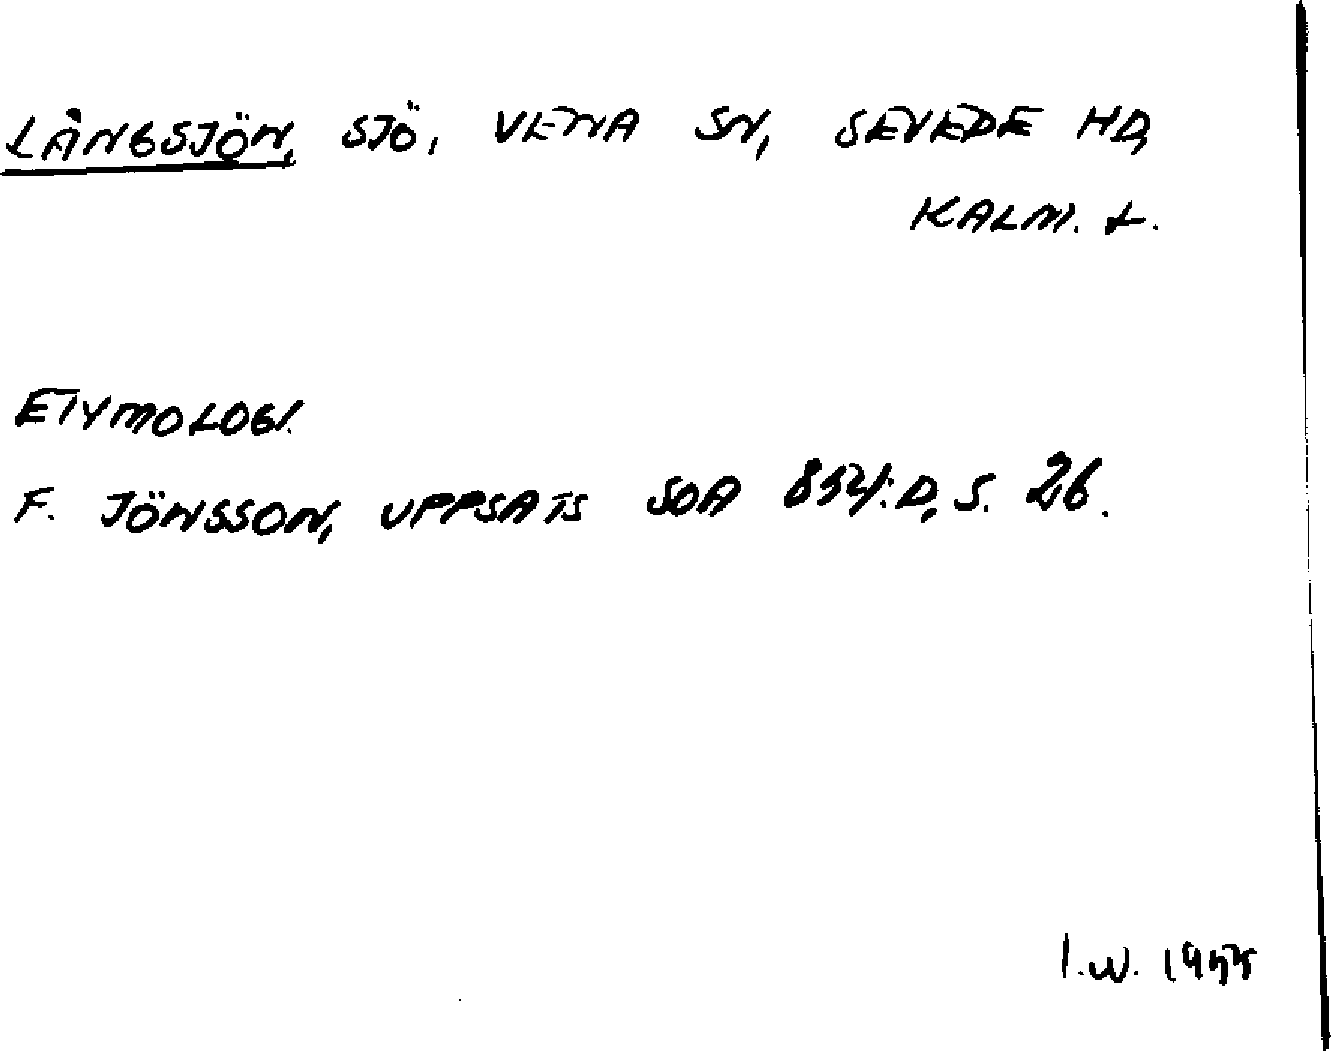 LÅNGSJÖN, SJÖ, VENA SN, SEVEDE HD,
KALM. L.
ETYMOLOGI.
F. JÖNSSON, UPPSATS SOA :D, S. 26.
I.W. 1955